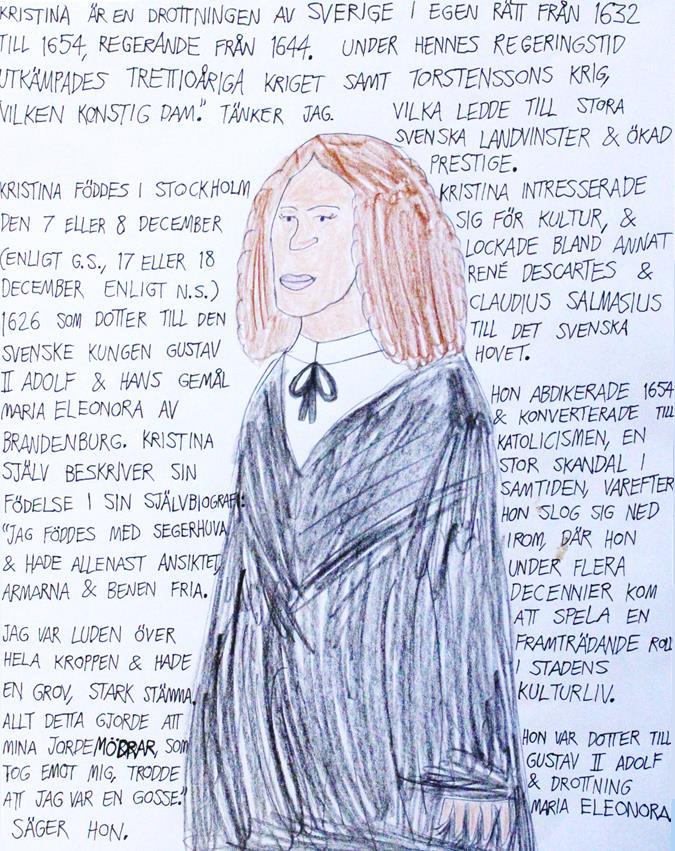 KRISTINA ÄR EN DROTTNINGEN AV SVERIGE I EGEN RÄTT FRÅN 1632
TILL 1654, REGERANDE FRÅN 1644. UNDER HENNES REGERINGSTID
UTKÄMPADES TRETTIOÅRIGA KRIGET SAMT TORSTENSSONS KRIG,
VILKEN KONSTIG DAM." TÄNKER JAG.
VILKA LEDDE TILL STORA
SVENSKA LANDVINSTER & ÖKAD
PRESTIGE.
KRISTINA FÖDDES I STOCKHOLM
DEN 7 ELLER 8 DECEMBER
(ENLIGT G.S., 17 ELLER 18
DECEMBER ENLIGT N.S.)
1626 SOM DOTTER TILL DEN
SVENSKE KUNGEN GUSTAV
II ADOLF & HANS GEMÅL
MARIA ELEONORA AV
BRANDENBURG. KRISTINA
SJÄLV BESKRIVER SIN
FÖDELSE I SIN SJÄLVBIOGRAFI:
"JAG FÖDDES MED SEGERHUVA
& HADE ALLENAST ANSIKTET,
ARMARNA & BENEN FRIA.
JAG VAR LUDEN ÖVER
HELA KROPPEN & HADE
EN GROV, STARK STÄMMA.
ALLT DETTA GJORDE ATT
MINA JORDEMÖDRAR, SOM
TOG EMOT MIG, TRODDE
ATT JAG VAR EN GOSSE."
SÄGER HON.
KRISTINA INTRESSERADE
SIG FÖR KULTUR, &
LOCKADE BLAND ANNAT
RENÉ DESCARTES &
CLAUDIUS SALMASIUS
TILL DET SVENSKA
HOVET.
HON ABDIKERADE 1654
& KONVERTERADE TILL
KATOLICISMEN, EN
STOR SKANDAL I
SAMTIDEN, VAREFTER
HON SLOG SIG NED
I ROM, DÄR HON
UNDER FLERA
DECENNIER KOM
ATT SPELA EN
FRAMTRÄDANDE ROLL
I STADENS
KULTURLIV.
HON VAR DOTTER TILL
GUSTAV II ADOLF
& DROTTNING
MARIA ELEONORA.